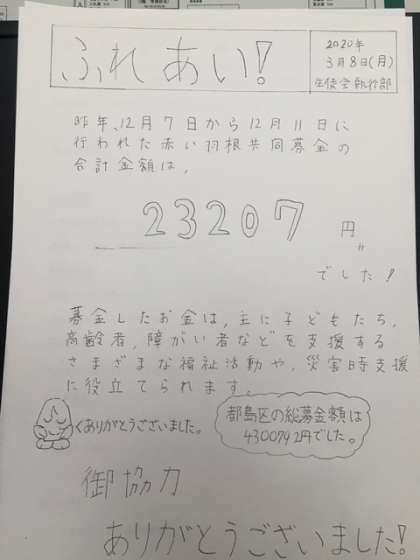 ふれあい!
2020年
3月8日(月)
生徒会執行部
昨年、12月7日から12月11日に
行われた赤い羽根共同募金の
合計金額は、
23207円
でした!
募金したお金は、主に子どもたち、
高齢者、障がい者などを支援する
さまざまな福祉活動や、災害時支援
に役立てられます。
ありがとうございました。
都島区の総募金額は
4300742円でした。
御協力
ありがとうございました!